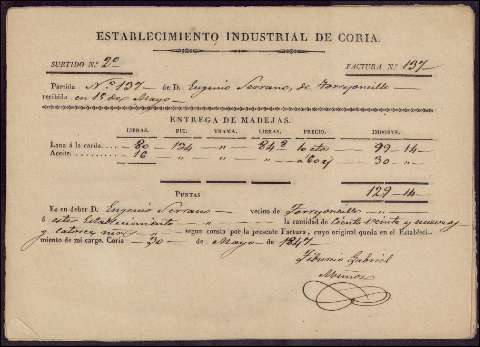 ESTABLECIMIENTO INDUSTRIAL DE CORIA.
SURTIDO N.º 2º FACTURA N.º 137
Partida Nº 137 de D. Eugenio Serrano, de Torrejoncillo
recibida en 15 de Mayo
ENTREGA DE MADEJAS.
LIBRAS. PIE. TRAMA. LIBRAS. PRECIO. IMPORTE.
Lana á la carda 80 124 " 84 99 14
Aceite 16 " " " 30 "
PUNTAS 129 14
Es en deber D. Eugenio Serrano vecino de Torrejoncillo
á este Establecimiento la cantidad de ciento veinte y nueve
y catorce mrs segun consta por la presente Factura, cuyo original queda en el Estableci-
miento de mi cargo. Coria 30 de Mayo de 1847
Tiburcio Gabriel
Muñoz